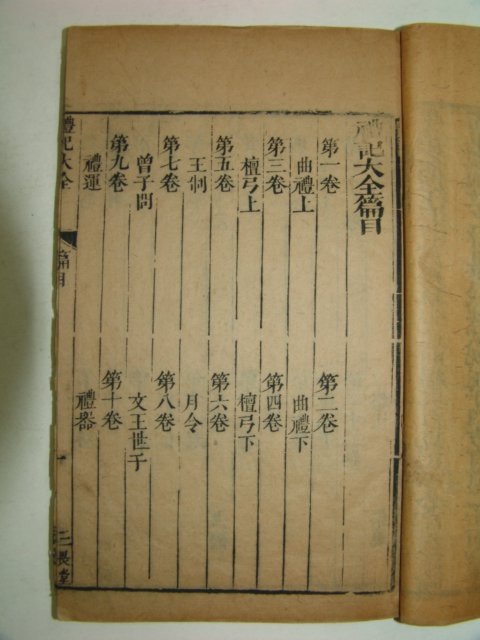 禮記大全篇目
第一卷　第二卷
曲禮上　曲禮下
第三卷　第四卷
檀弓上　檀弓下
第五卷　第六卷
王制　月令
第七卷　第八卷
曾子問　文王世子
第九卷　第十卷
禮運　禮器
禮記大全　篇目　三畏堂